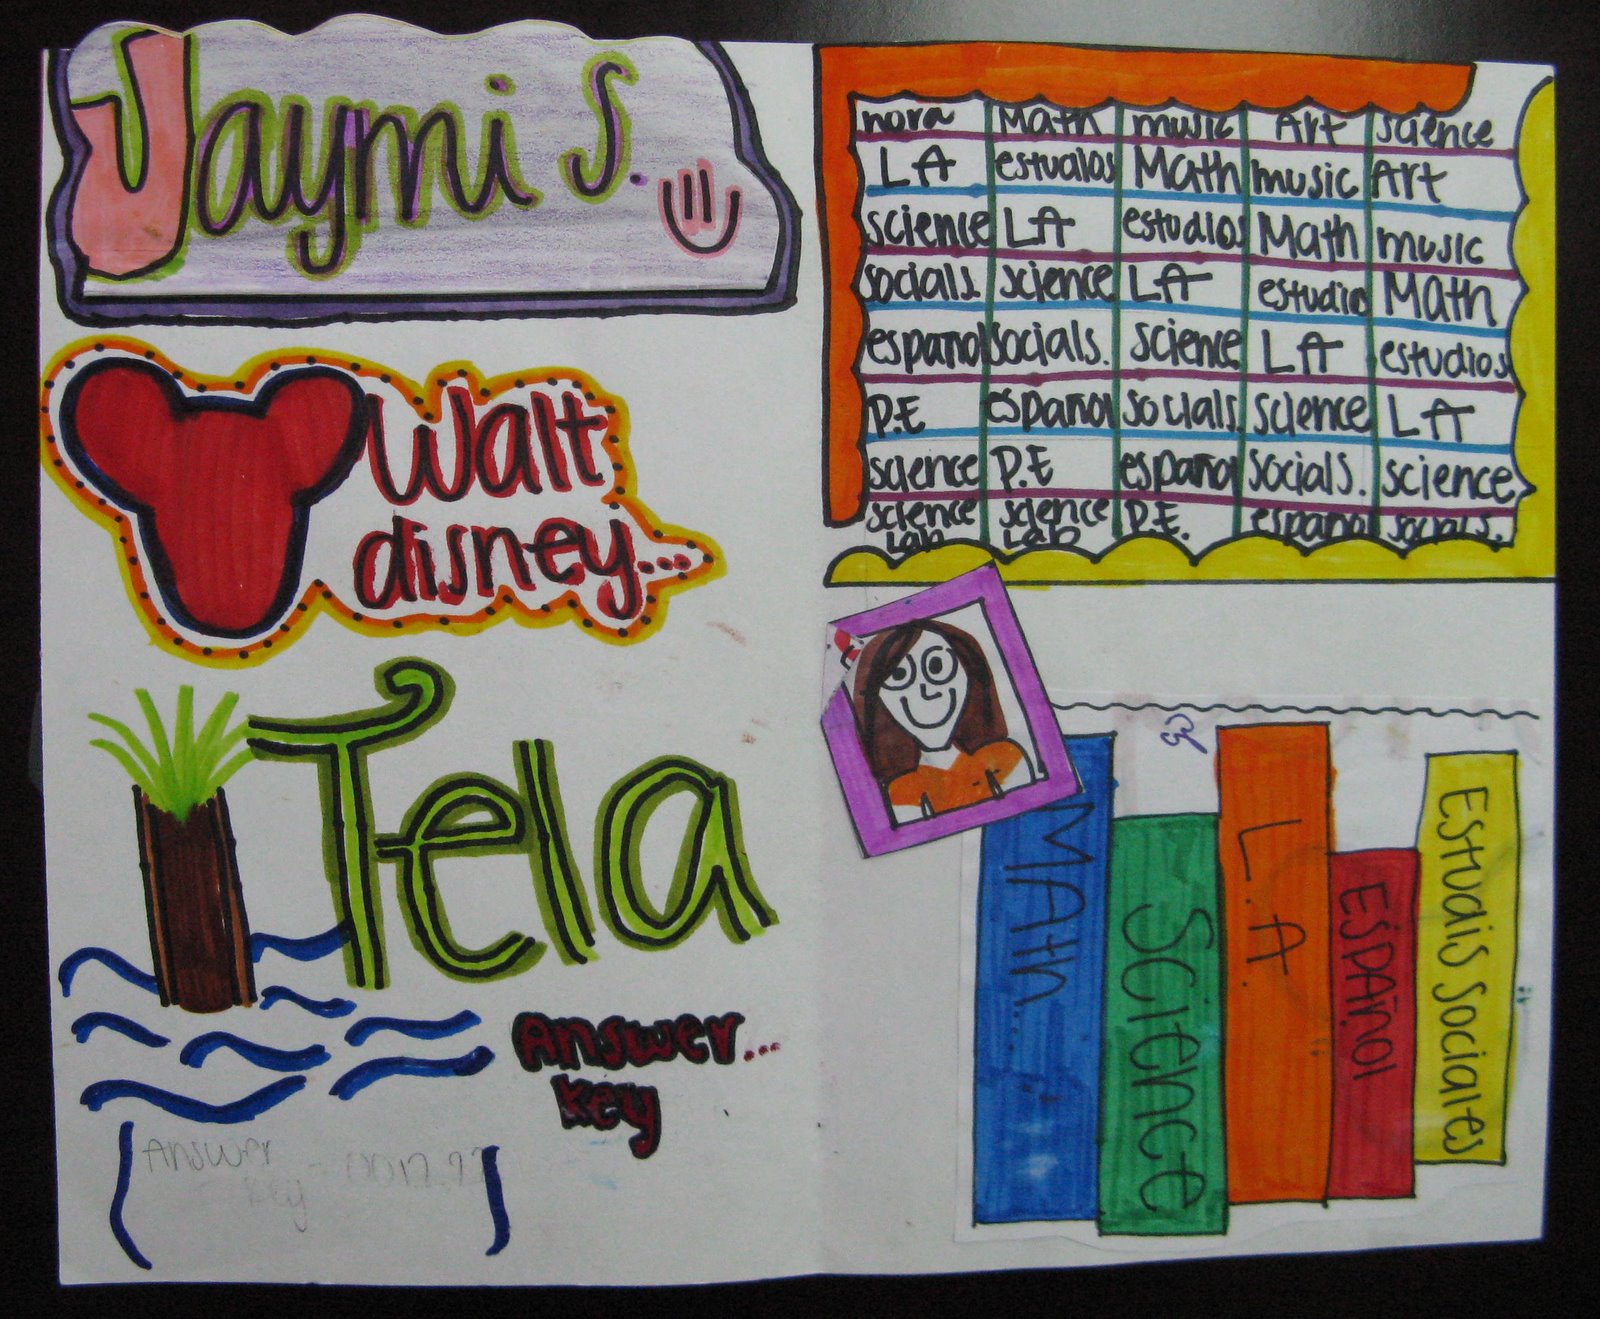 Jaymi S.
Walt
disney...
Tela
Answer...
key
Answer
key
nora Math music Art science
LA estudios Math music Art
science LA estudios Math music
socials. science LA estudios Math
español socials. science LA estudios
P.E español socials. science LA
science P.E español socials. science
science science P.E. español socials.
Lab Lab
MAth...
Science
L.A.
Español
Estudais Sociales